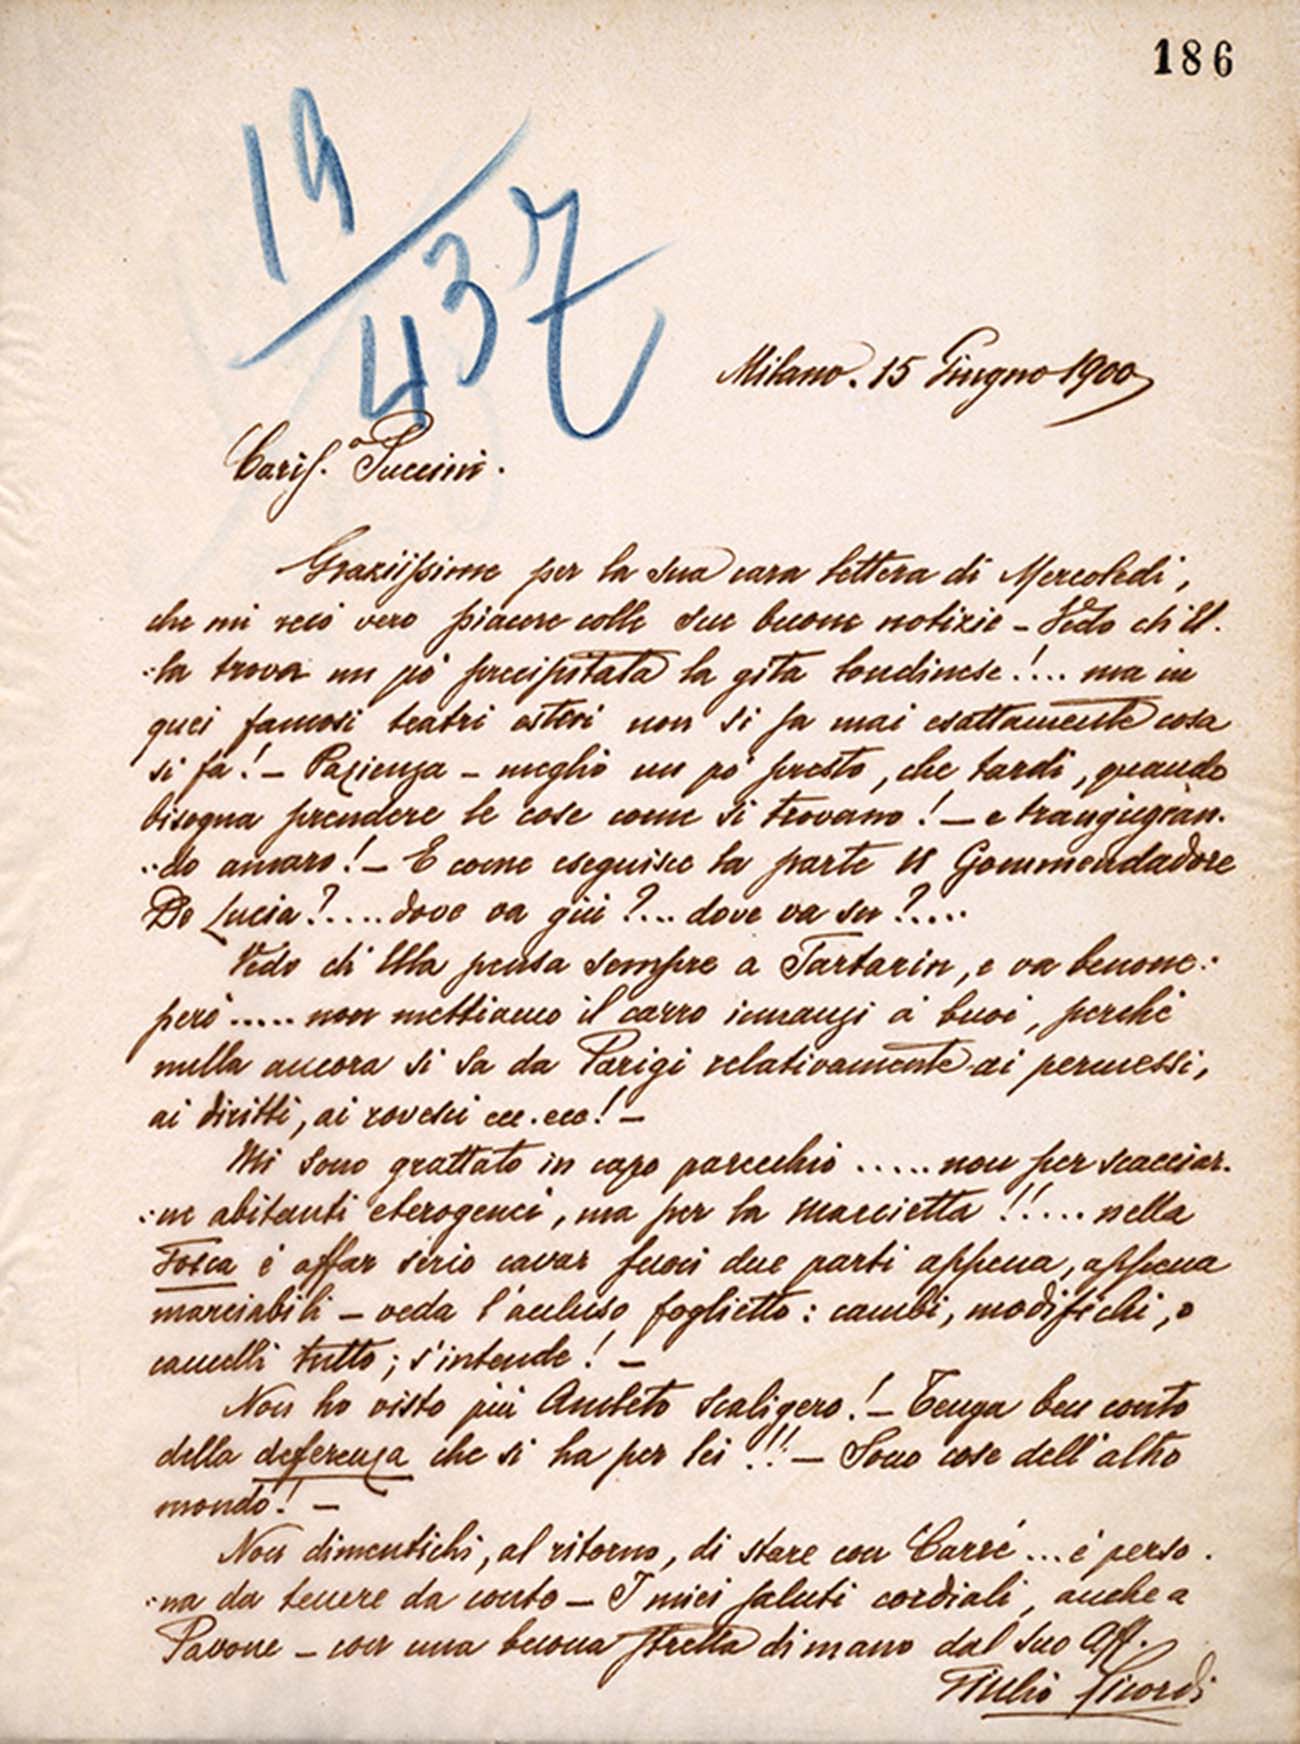 186
19
437
Milano. 15 Giugno 1900
Cariss.º Puccini.
Graziissime per la sua cara lettera di Mercoledì,
che mi recò vero piacere colle sue buone notizie – Vedo ch'El-
-la trova un pò precipitata la gita londinese!... ma in
quei famosi teatri esteri non si sa mai esattamente cosa
si fa! – Pazienza – meglio un po' presto, che tardi, quando
bisogna prendere le cose come si trovano! – e trangugian-
-do amaro! – E come eseguisce la parte il Gommendadore
De Lucia?.... dove va giù?... dove va su?....
Vedo ch'Ella pensa sempre a Tartarin, e va benone:
però ..... non mettiamo il carro innanzi ai buoi, perchè
nulla ancora si sa da Parigi relativamente ai permessi,
ai diritti, ai rovesci ecc. ecc! –
Mi sono grattato in capo parecchio ..... non per scacciar-
-ne abitanti eterogenei, ma per la marcietta!!.... nella
Tosca è affar serio cavar fuori due parti appena, appena
marciabili – veda l'accluso foglietto: cambi, modifichi, o
cancelli tutto; s'intende! –
Non ho visto più Amleto scaligero! – Tenga ben conto
della deferenza che si ha per lei!!! – Sono cose dell'altro
mondo! –
Non dimentichi, al ritorno, di stare con Carré ... è perso-
-na da tenere da conto – I miei saluti cordiali, anche a
Pavone – con una buona stretta di mano dal suo Aff.
Giulio Ricordi